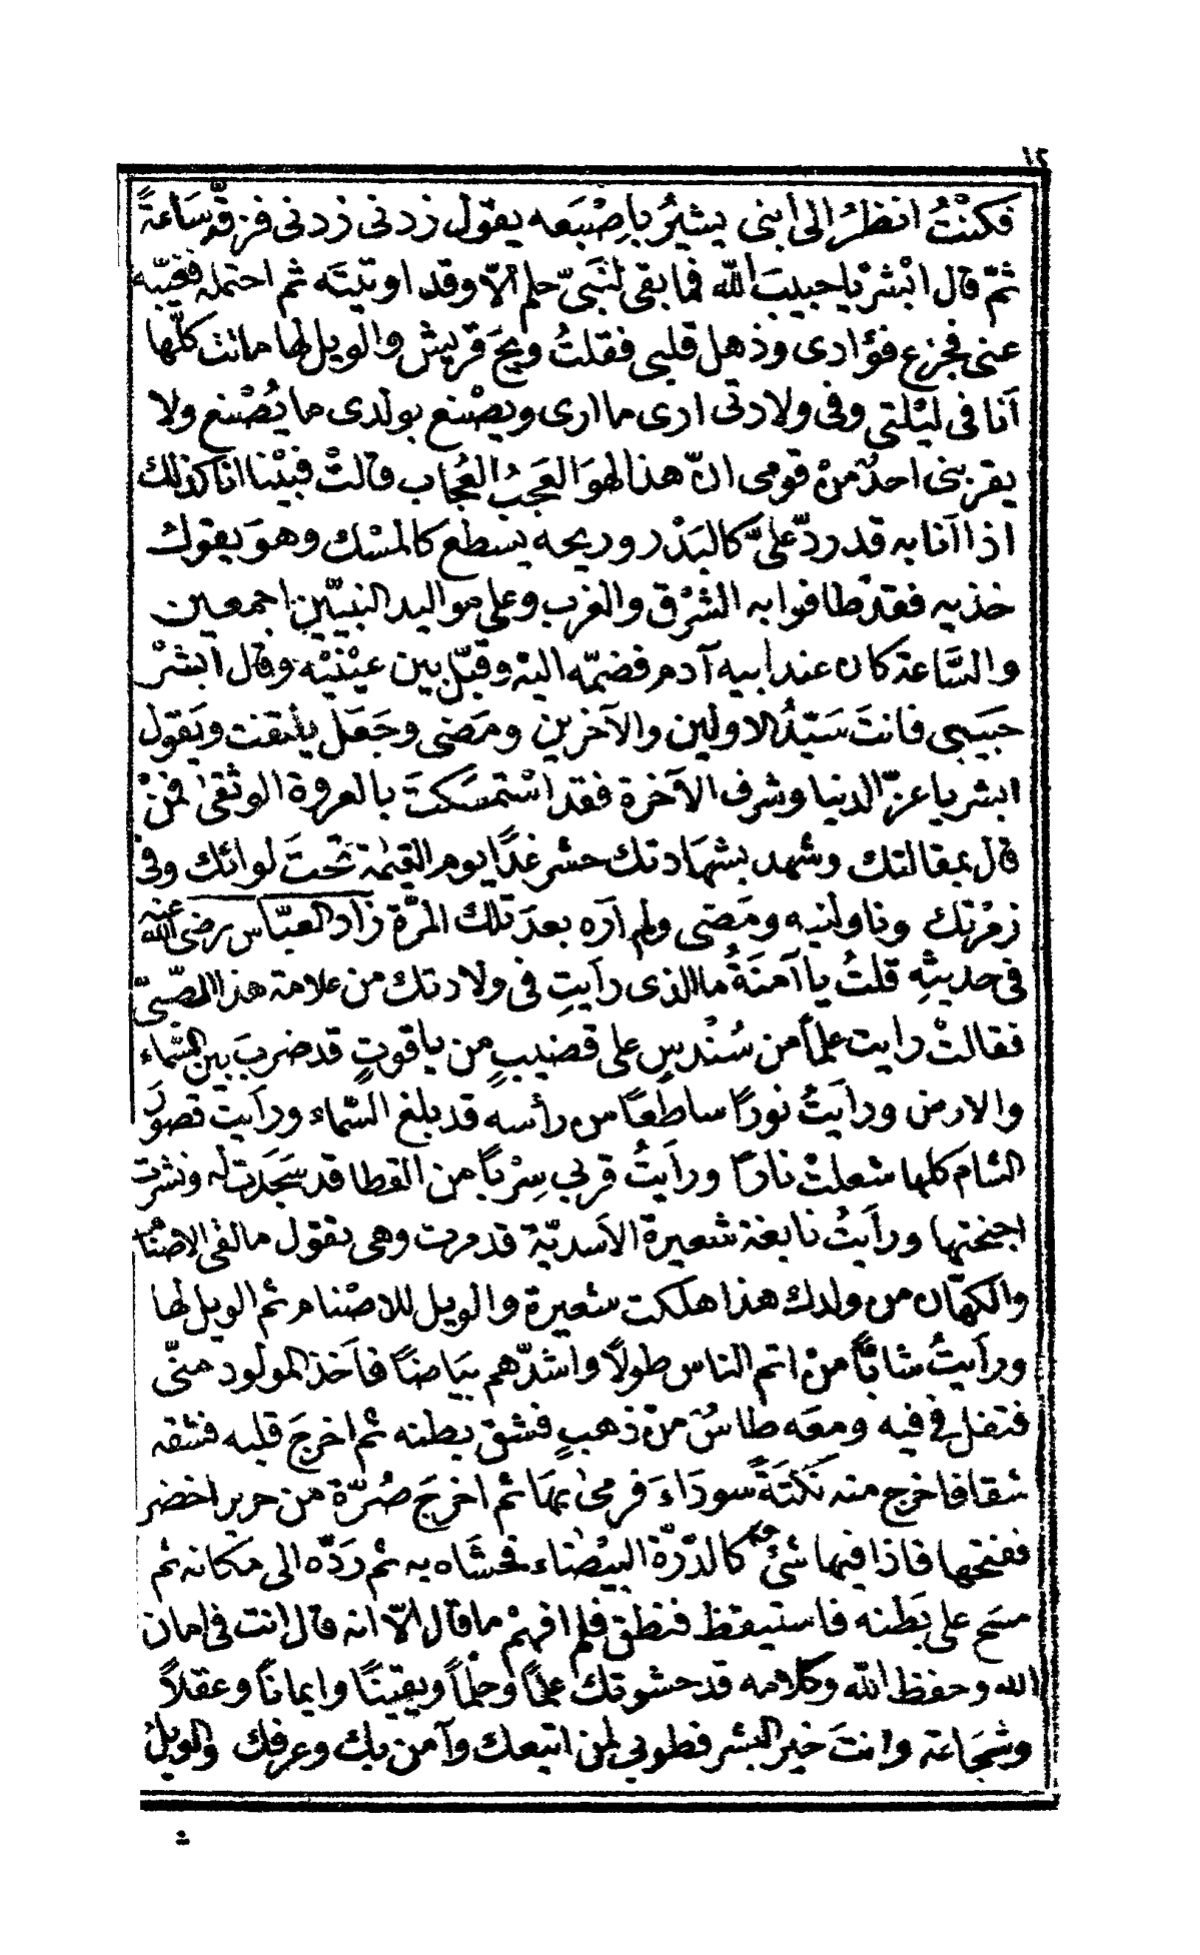 ١٢
فكنْتُ انظرُ الى أبنى يشيرُ باِصْبَعه يقول زدنى زدنى فزقّه سَاعةً
ثمّ قال ابْشرْ يا حبيبَ الله فما بقى لنَبىّ حلم الّا وقد اوتيتَه ثم احتمله فغيّبه
عنى فجزع فؤادى وذهل قلبى فقلتُ ويحَ قريش والويل لها ماتت كلّها
اَنا فى ليْلتى وفى ولادتى ارى ما ارى ويصْنع بولدى ما يُصْنع ولا
يقربنى احدٌ منْ قومى انّ هذا لهوَ العَجبُ العُجاب قالتْ فبيْنا انا كذلك
اذا اَنا به قد ردّ علىَّ كالبَدْر وريحه يسطع كالمسْك وهوَ يقول
خذيه فقدْ طافوا به الشرْق والغرب وعلى مواليد النبيّين اجمعين
والسَّاعة كان عند ابيه آدم فضمّه اليْه وقبّل بين عيْنيْه وقال ابشرْ
حبَيبى فانتَ سَيّدُ الاولين والآخرين ومَضى وجَعَل يلتفت ويَقول
ابشر يا عزّ الدنيا وشرف الآخرة فقد اسْتمسَكتَ بالعروة الوثقىٰ فمنْ
قال بمقالتك وشهد بشهَادتك حشر غدًا يوم القيٰمة تحتَ لوائك وفى
زمْرتك وناولنيه ومَضى ولم اَره بعدَ تلك المرّة زاد العبّاس رضى الله عنه
فى حديثهِ قلتُ يا آمنَةُ ما الذى رأيتِ فى ولادتك من علامة هذا الصّبىّ
فقالتْ رايت علماً من سُنْدسٍ على قضيبٍ من ياقوتٍ قد ضربَ بين السّماء
والارض ورأيتُ نورًا ساطعًا من رأسه قد بلغ السّماء ورأيت قصوَر
الشام كلها شعلتْ نارًا ورأيتُ قربى سِرْبًا من القطا قد سَجَدَت له ونشرت
اجنحتها ورأيتُ نابغة شعيرة الاَسديّة قد مرت وهى تقول مالقى الاصنُام
والكهّان من ولدك هذا هلكت شعيرة والويل للاصْنام ثم الويل لها
ورأيتُ شابًّا منْ اتم الناس طولاً واشدّهم بيَاضًا فاَخذ المولود منّى
فتفل فى فيه ومعَه طاسٌ منْ ذهبٍ فشق بطنه ثم اخرجَ قلبه فشقه
شقا فاخرج منه نكْتَةً سودَاءَ فرمىٰ بهَا ثم اخرجَ صُرّة من حرير اخضر
ففتحها فاذا فيها شئ كالدرّة البيْضاء فحشَاه به ثم رَدّه الى مكانه ثم
مسَح على بَطنه فاستيقظ فنطق فلم افهمْ ما قال الّا انه قال انت فى امان
الله وحفظ الله وكلامه قد حشوتك علماً وحلْماً ويقينًا وايمانًا وعقلاً
وشجَاعة وانتَ خير البشر فطوبى لمن اتبعك وآمن بك وعرفك والويلُ